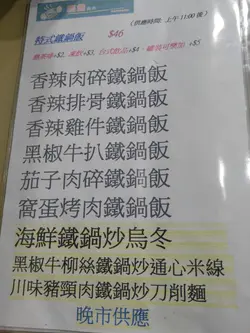 (供應時間: 上午 11:00 後)
特式鐵鍋飯 $46
香辣肉碎鐵鍋飯
香辣排骨鐵鍋飯
香辣雞件鐵鍋飯
黑椒牛扒鐵鍋飯
茄子肉碎鐵鍋飯
窩蛋烤肉鐵鍋飯
海鮮鐵鍋炒烏冬
黑椒牛柳絲鐵鍋炒通心米線
川味豬頸肉鐵鍋炒刀削麵
晚市供應